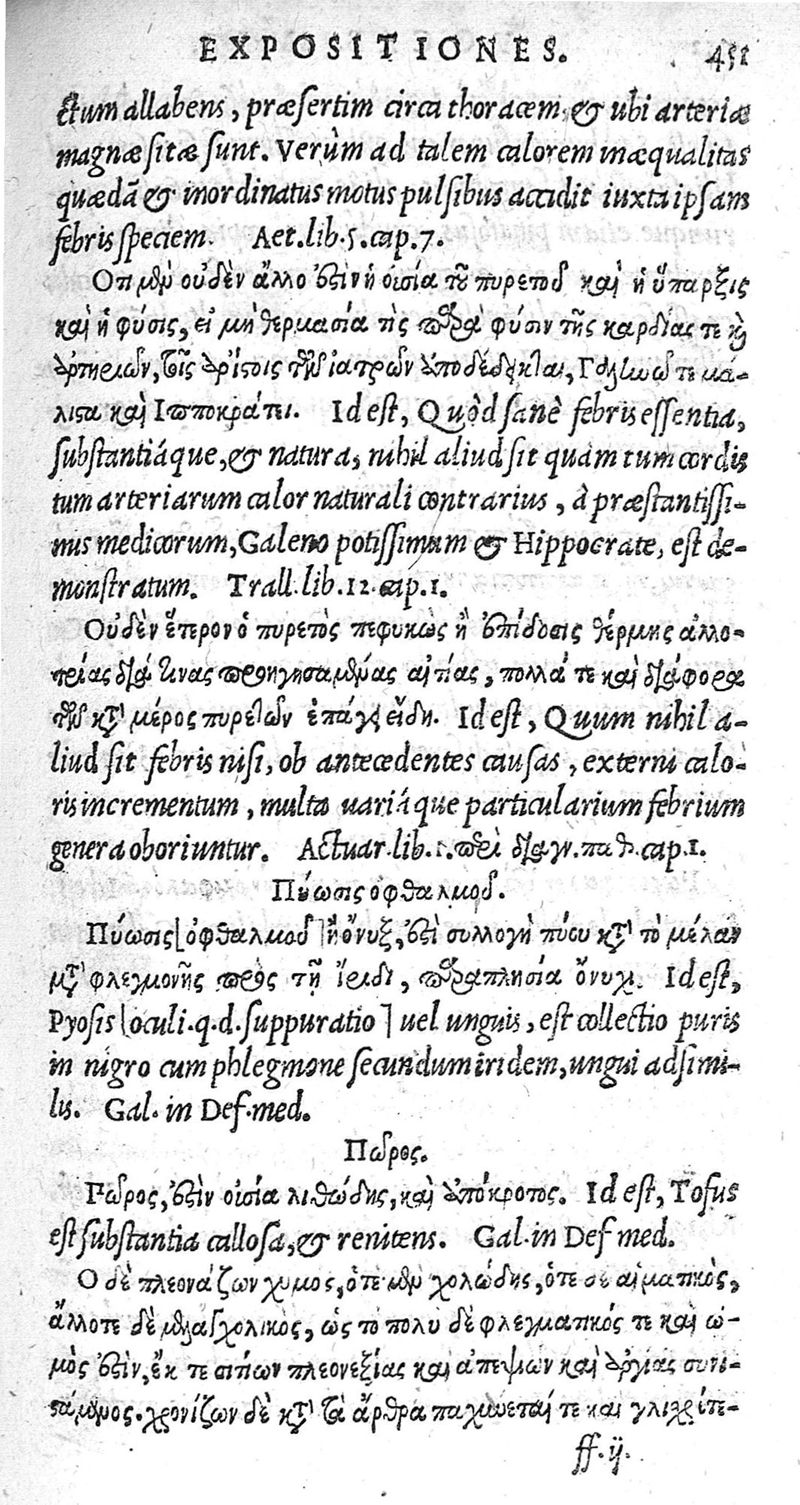 EXPOSITIONES. 451
ctum allabens, præsertim circa thoracem, & ubi arteriæ
magnæ sitæ sunt. Verùm ad talem calorem inæqualitas
quædã & inordinatus motus pulsibus accidit iuxta ipsam
febris speciem. Aet. lib. 5. cap. 7.
Οτι μὲν οὐδὲν ἄλλο ἐστὶν ἡ οὐσία τοῦ πυρετοῦ καὶ ἡ ὕπαρξις
καὶ ἡ φύσις, εἰ μὴ θερμασία τὶς παρὰ φύσιν τῆς καρδίας τε καὶ
ἀρτηριῶν, τοῖς ἀρίστοις τῶν ἰατρῶν ἀποδέδεικται, Γαληνῷ τε μά-
λιστα καὶ Ιπποκράτει. Id est, Quòd sanè febris essentia,
substantiáque, & natura, nihil aliud sit quàm tum cordis
tum arteriarum calor naturali contrarius, à præstantissi-
mis medicorum, Galeno potissimum & Hippocrate, est de-
monstratum. Trall. lib. 12. cap. 1.
Οὐδὲν ἕτερον ὁ πυρετὸς πεφυκὼς ἢ ἐπίδοσις θέρμης ἀλλο-
τρίας διά τινας προηγησαμένας αἰτίας, πολλά τε καὶ διάφορα
τῶν κατὰ μέρος πυρετῶν ἐπάγει εἴδη. Id est, Quum nihil a-
liud sit febris nisi, ob antecedentes causas, externi calo-
ris incrementum, multa uariáque particularium febrium
genera oboriuntur. Actuar. lib. 1. περὶ διαγν. παθ. cap. 1.
Πύωσις ὀφθαλμοῦ.
Πύωσις [ὀφθαλμοῦ] ἢ ὄνυξ, ἐστὶ συλλογὴ πύου κατὰ τὸ μέλαν
μετὰ φλεγμονῆς πρὸς τῇ ἴριδι, παραπλησία ὄνυχι. Id est,
Pyosis [oculi. q. d. suppuratio] uel unguis, est collectio puris
in nigro cum phlegmone secundum iridem, ungui adsimi-
lis. Gal. in Def. med.
Πῶρος.
Πῶρος, ἐστὶν οὐσία λιθώδης, καὶ ἀπόκροτος. Id est, Tofus
est substantia callosa, & renitens. Gal. in Def med.
Ο δὲ πλεονάζων χυμος, ὁτὲ μὲν χολώδης, ὁτὲ δὲ αἱματικὸς,
ἄλλοτε δὲ μελαγχολικὸς, ὡς τὸ πολὺ δὲ φλεγματικός τε καὶ ὠ-
μὸς ἐστὶν, ἔκ τε σιτίων πλεονεξίας καὶ ἀπεψιῶν καὶ ἀργίας συνι-
στάμενος. χρονίζων δὲ κατὰ τὰ ἄρθρα παχύνεταί τε καὶ γλισχρότε-
ff. ij.